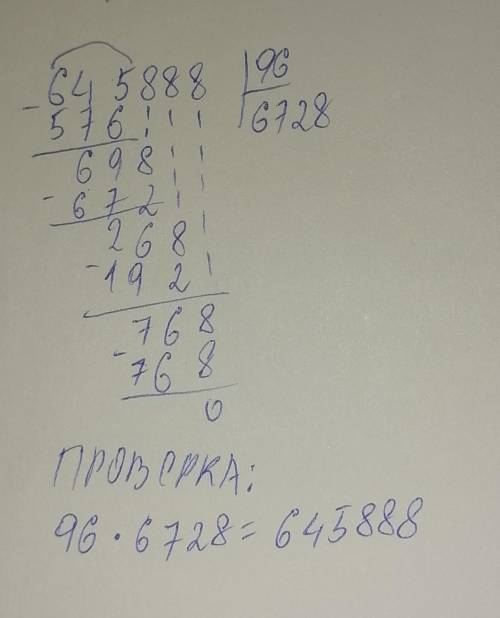 645888 | 96
- 576 6728
698
- 672
268
- 192
768
- 768
0
ПРОВЕРКА:
96 · 6728 = 645888